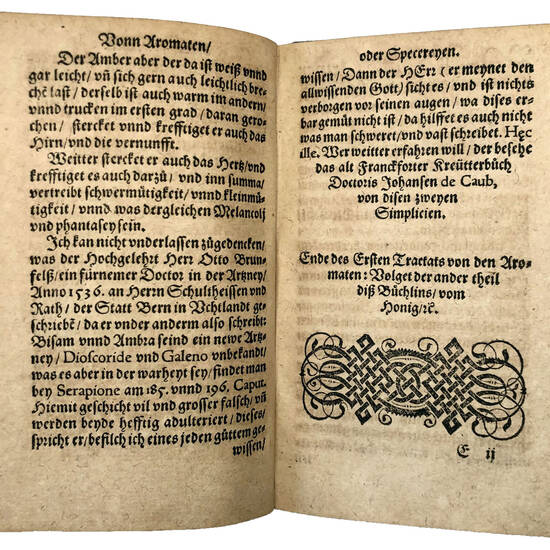 Vonn Aromaten/
Der Amber aber der da ist weiß vnnd
gar leicht/ vñ sich gern auch leichtlich bre-
chẽ last/ derselb ist auch warm im andern/
vnnd trucken im ersten grad/ daran gero-
chen/ stercket vnnd krefftiget er auch das
Hirn/ vnd die vernunfft.
Weitter stercket er auch das Hertz/ vnd
krefftiget es auch darzů/ vnd inn summa/
vertreibt schwermütigkeit/ vnd kleinmü-
tigkeit/ vnnd was dergleichen Melancolj
vnd phantasey sein.
Ich kan nicht vnderlassen zůgedencken/
was der Hochgelehrt Herr Otto Brun-
felß/ ein fürnemer Doctor in der Artzney/
Anno 1536. an Herrn Schultheissen vnd
Rath/ der Statt Bern in Vchtlandt ge-
schribẽ/ da er vnder andern also schreibt:
Bisam vnnd Ambra seind ein newe Artz-
ney/ Dioscoride vnd Galeno vnbekandt/
was es aber in der warheyt sey/ findet man
bey Serapione am 185. vnnd 196. Caput.
Hiemit geschicht vil vnd grosser falsch/ vñ
werden beyde hefftig adulteriert/ dieses/
spricht er/ befilch ich eines jeden gůttem ge-
wissen/
oder Specereyen.
wissen/ Dann der HErr (er meynet den
allwissenden Gott) sicht es/ vnd ist nichts
verborgen vor seinen augen/ wa dises er-
bar gemüt nicht ist/ da hilffet es auch nicht
was man schweret/ vnd vast schreibet. Hęc
ille. Wer weitter erfahren will/ der besehe
das alt Franckforter Kreütterbůch
Doctoris Johansen de Caub,
von disen zweyen
Simplicien.
Ende des Ersten Tractats von den Aro-
maten: Volget der ander theil
diß Büchlins/ vom
Honig/ ꝛc.
E ij